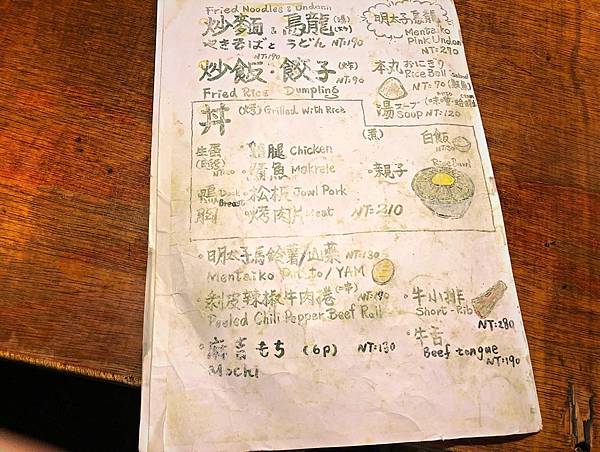 Fried Noodles & Undon
炒麵 & 烏龍 (湯)(炒)
やきそばと うどん NT:190
明太子烏龍
Mentaiko
Pink Undon
NT:290
NT:190
炒飯・餃子 (炸) NT:90
Fried Rice Dumpling
本丸 おにぎり
Rice Ball
NT:70 (鮭魚)
湯 スープ (味噌・蛤蜊)
Soup NT:120
丼 (烤) Grilled With Rice
(煮)
白飯
Rice Bowl
生蛋
雞腿 Chicken
鯖魚 Makrele
・親子
鴨胸 Duck Breast
・松板 Jowl Pork
・烤肉片 Meat NT:210
・明太子馬鈴薯/山藥 NT:130
Mentaiko Potato / YAM
剝皮辣椒牛肉捲 (二串) NT:190
Peeled Chili Pepper Beef Roll
・牛小排
Short-Rib
NT:280
・麻吉 もち (6p) NT:130
Mochi
・牛舌
Beef tongue
NT:190